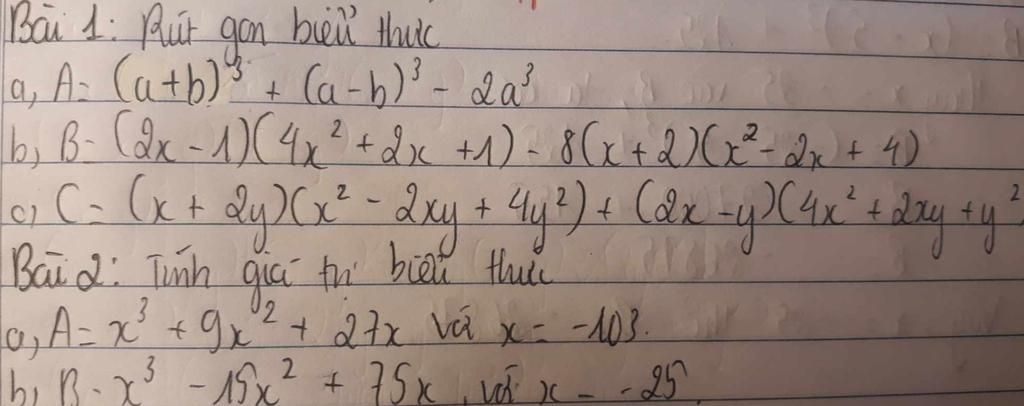 Bài 1: Rút gọn biểu thức
a, A = (a+b)³ + (a-b)³ - 2a³
b, B = (2x - 1)(4x² + 2x + 1) - 8(x + 2)(x² - 2x + 4)
c, C = (x + 2y)(x² - 2xy + 4y²) + (2x - y)(4x² + 2xy + y²
Bài 2: Tính giá trị biểu thức
a, A = x³ + 9x² + 27x với x = -103.
b, B = x³ - 15x² + 75x, với x = -25